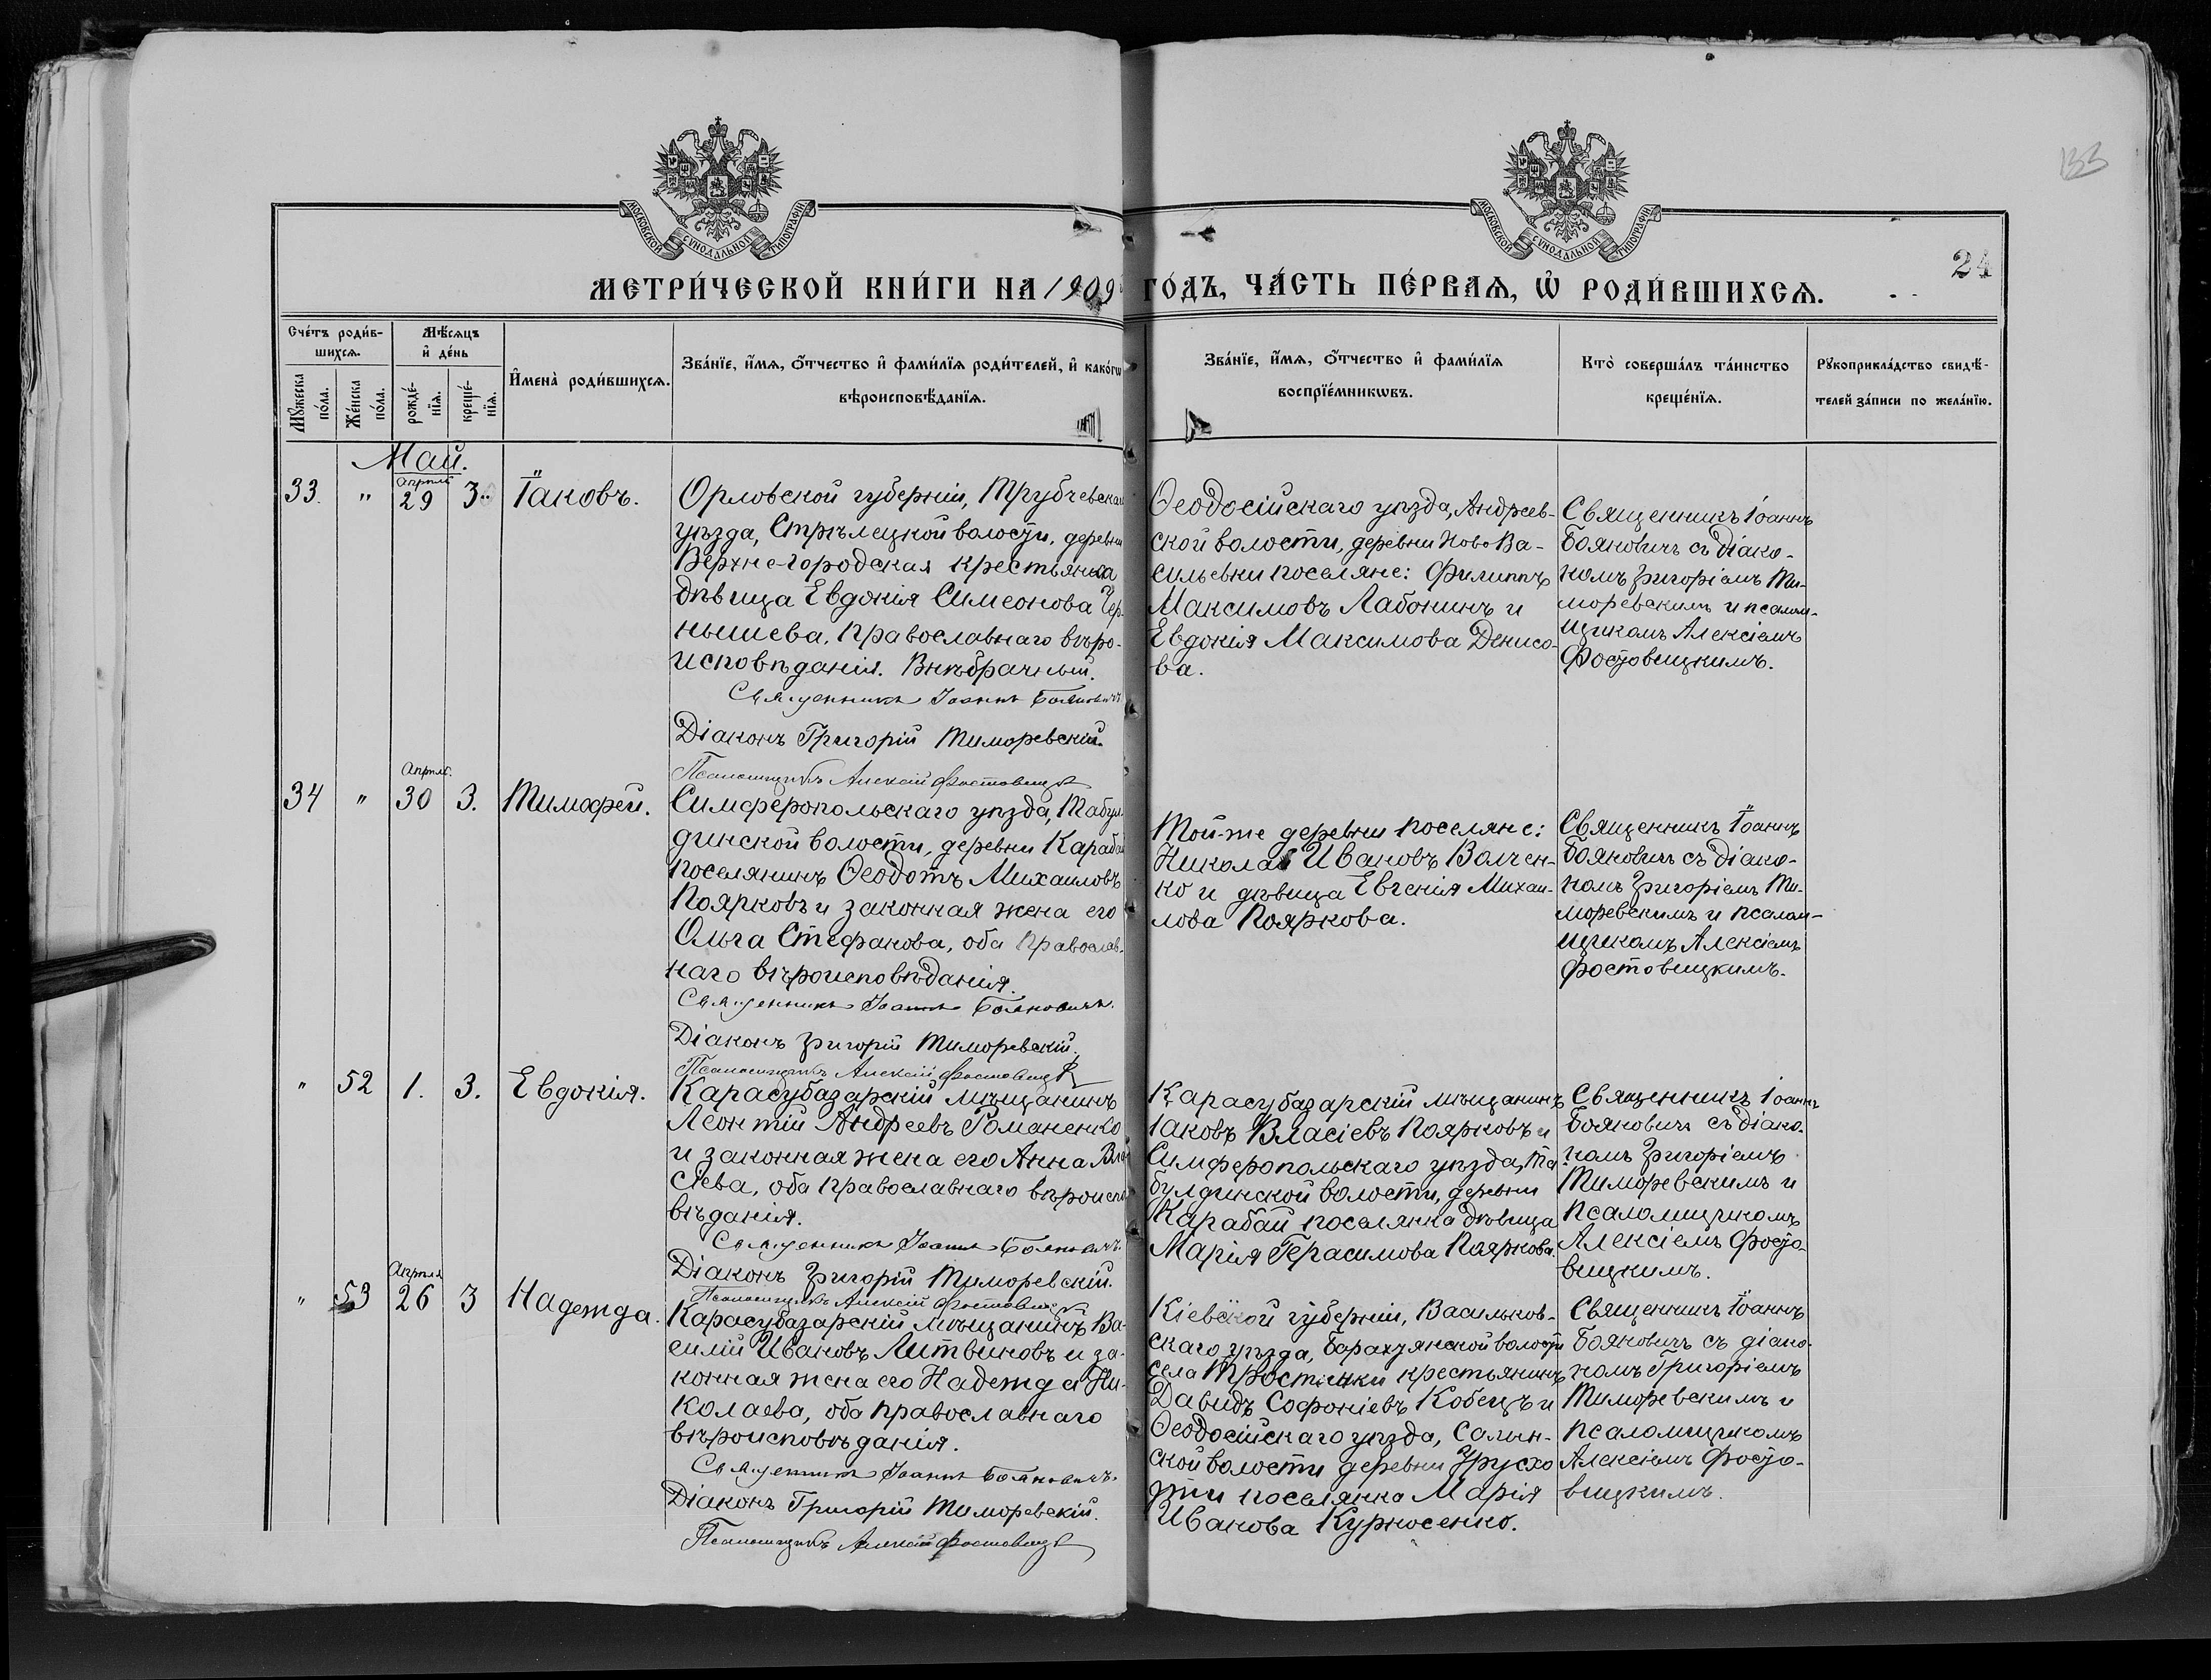 133
МОСКОВСКОЙ СѴНОДАЛЬНОЙ ТИПОГРАФІИ
МОСКОВСКОЙ СѴНОДАЛЬНОЙ ТИПОГРАФІИ
24
МЕТРИ́ЧЕСКОЙ КНИ́ГИ НА 1909 ГО́ДЪ, ЧА́СТЬ ПЕ́РВАѦ, Ѡ҆ РОДИ́ВШИХСѦ.
Сче́тъ роди́в-
шихсѧ.
Мѣ́сѧцъ
и҆ де́нь
Мꙋ́жеска
по́ла.
Же́нска
по́ла.
рожде́-
нїѧ.
креще́-
нїѧ.
И҆мена̀ роди́вшихсѧ.
Зва́нїе, и҆́мѧ, ѻ҆́тчество и҆ фами́лїѧ роди́телей, и҆ како́гѡ
вѣроисповѣ́данїѧ.
Зва́нїе, и҆́мѧ, ѻ҆́тчество и҆ фами́лїѧ
воспрїе́мникѡвъ.
Кто̀ соверша́лъ та́инство
креще́нїѧ.
Рꙋкоприкла́дство свидѣ́-
телей за́писи по жела́нїю.
Май.
33. " Апрѣль 29 3. Іаковъ.
Орловской губерніи, Трубчевска
уѣзда, Стрѣлецкой волости, деревни
Верхне-городская крестьянка
дѣвица Евдокія Симеонова Чер-
нышева, православнаго вѣро-
исповѣданія. Внѣбрачный.
Священникъ Іоаннъ Бояновичъ
Діаконъ Григорій Тиморевскій.
Псаломщикъ Алексій Фостовецкій
Ѳеодосійскаго уѣзда, Андреев-
ской волости, деревни Ново Ва-
сильевки поселяне: Филиппъ
Максимовъ Лабонинъ и
Евдокія Максимова Денисо-
ва.
Священникъ Іоаннъ
Бояновичъ съ діако-
номъ Григоріемъ Ти-
моревскимъ и псалом-
щикомъ Алексіемъ
Фостовецкимъ.
34 " Апрѣль. 30 3. Тимофей.
Симферопольскаго уѣзда, Табул-
динской волости, деревни Карабай
поселянинъ Ѳеодотъ Михаиловъ
Поярковъ и законная жена его
Ольга Стефанова, оба православ-
наго вѣроисповѣданія.
Священникъ Іоаннъ Бояновичъ.
Діаконъ Григорій Тиморевскій.
Псаломщикъ Алексій Фостовецкій
Той-же деревни поселяне:
Николай Ивановъ Волчен-
ко и дѣвица Евгенія Михаи-
лова Пояркова.
Священникъ Іоаннъ
Бояновичъ съ діако-
номъ Григоріемъ Ти-
моревскимъ и псалом-
щикомъ Алексіемъ
Фостовецкимъ.
" 52 1. 3. Евдокія.
Карасубазарскій мѣщанинъ
Леонтій Андреевъ Романенко
и законная жена его Анна Вла-
сіева, оба православнаго вѣроиспо-
вѣданія.
Священникъ Іоаннъ Бояновичъ.
Діаконъ Григорій Тиморевскій.
Псаломщикъ Алексій Фостовецкій
Карасубазарскій мѣщанинъ
Іаковъ Власіевъ Поярковъ и
Симферопольскаго уѣзда, Та-
булдинской волости, деревни
Карабай поселянка дѣвица
Марія Герасимова Пояркова.
Священникъ Іоаннъ
Бояновичъ съ діако-
номъ Григоріемъ
Тиморевскимъ и
псаломщикомъ
Алексіемъ Фосто-
вецкимъ.
" 53 Апрѣля 26 3 Надежда.
Карасубазарскій мѣщанинъ Ва-
силій Ивановъ Литвиновъ и за-
конная жена его Надежда Ни-
колаева, оба православнаго
вѣроисповѣданія.
Священникъ Іоаннъ Бояновичъ.
Діаконъ Григорій Тиморевскій.
Псаломщикъ Алексій Фостовецкій
Кіевской губерніи, Васильков-
скаго уѣзда, Барахянской волости
села Тростинки крестьянинъ
Давидъ Софоніевъ Кобецъ и
Ѳеодосійскаго уѣзда, Салын-
ской волости деревни Урусхо
джи поселянка Марія
Иванова Курносенко.
Священникъ Іоаннъ
Бояновичъ съ діако-
номъ Григоріемъ
Тиморевскимъ и
псаломщикомъ
Алексіемъ Фосто-
вецкимъ.